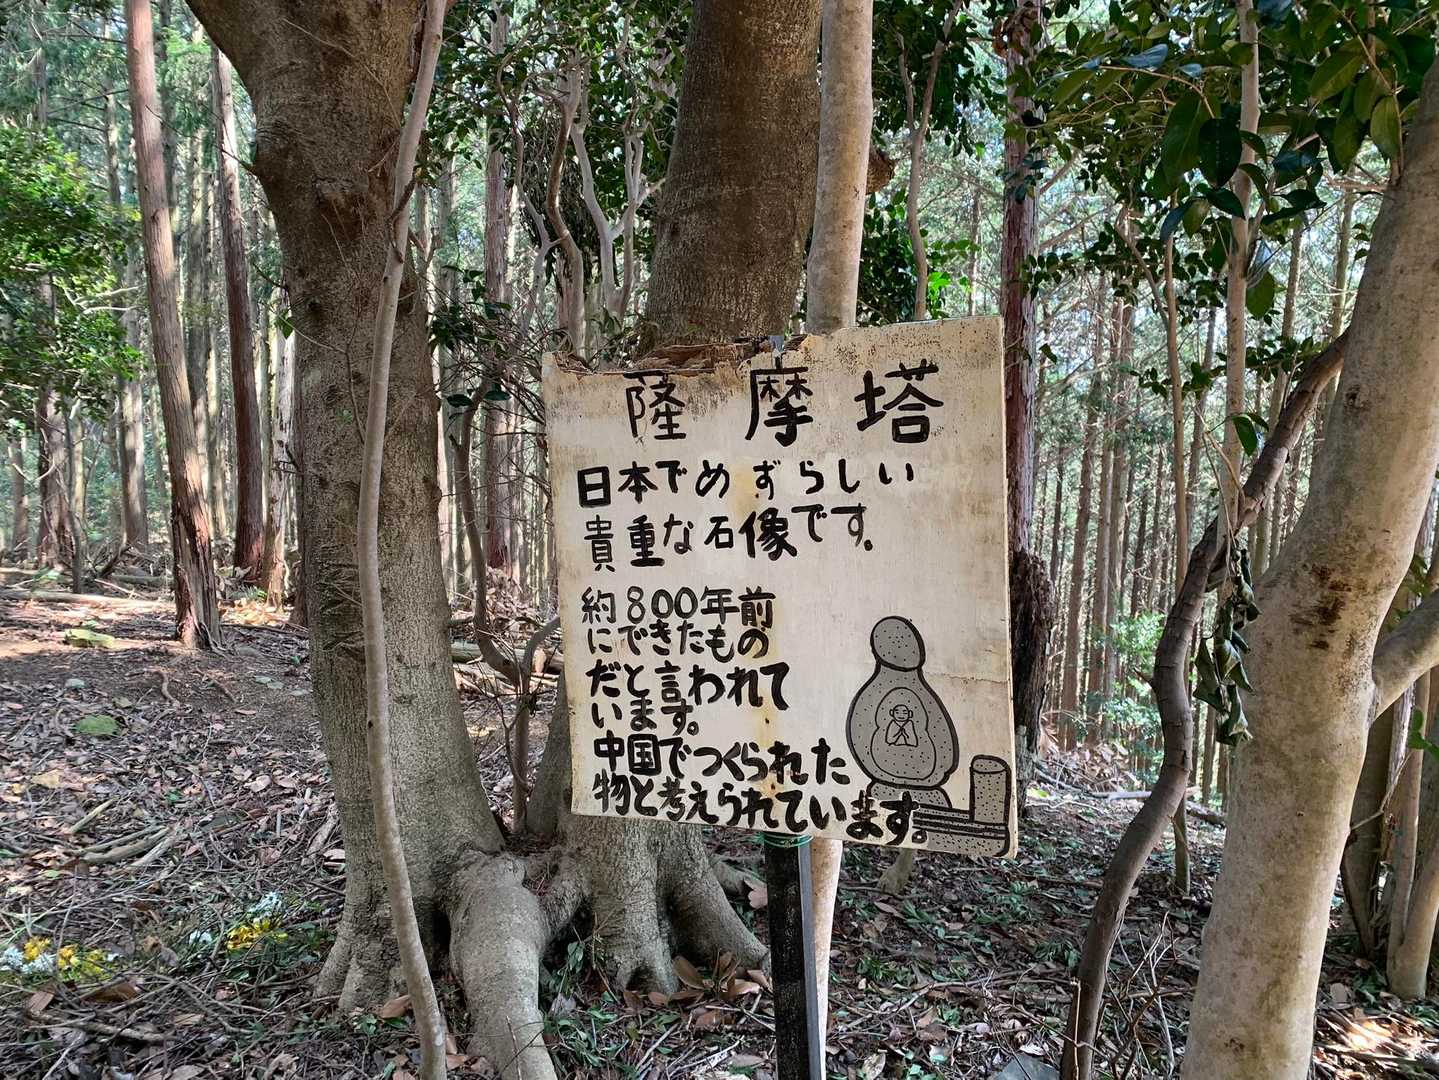 薩摩塔
日本でめずらしい
貴重な石像です。
約800年前
にできたもの
だと言われて
います。
中国でつくられた
物と考えられています。